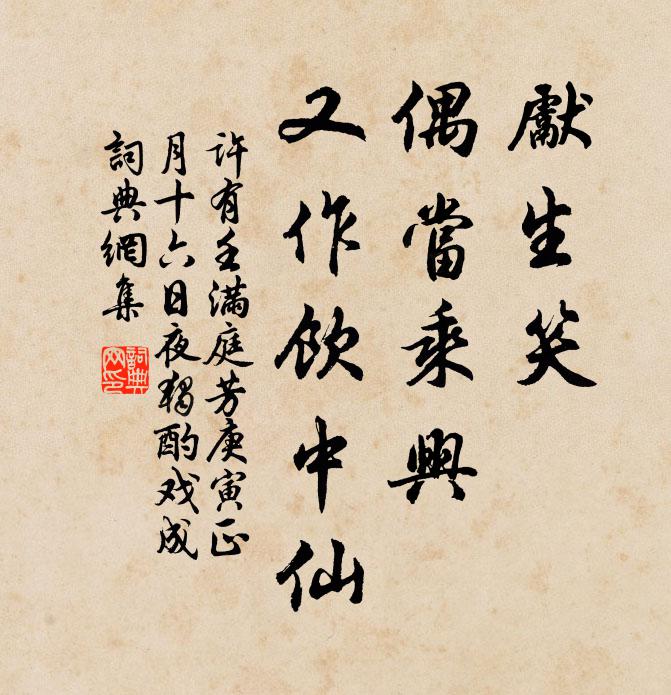 獻生笑
偶當乘興
又作飲中仙
許有壬滿庭芳庚寅正
月十六日夜獨酌戏成
詞典網集
詞典
网印